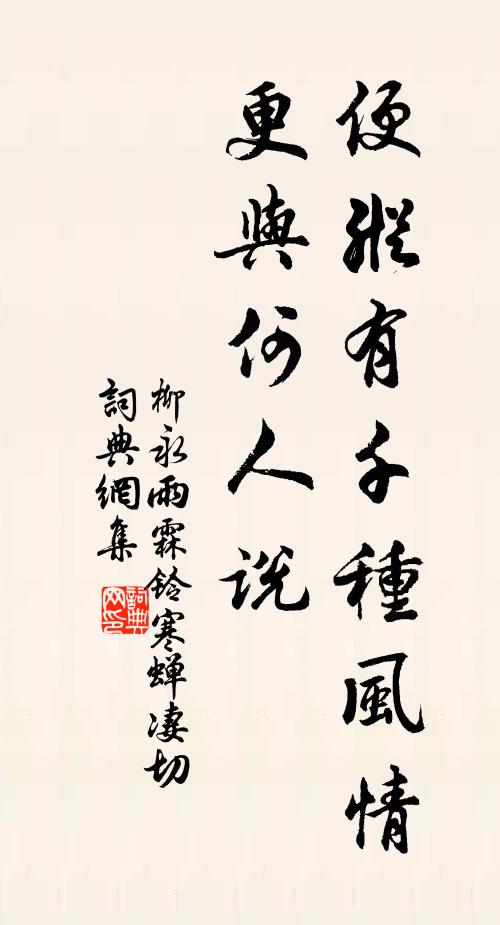 便縱有千種風情
更與何人説
柳永雨霖鈴寒蟬凄切
詞典網集
詞典
网印